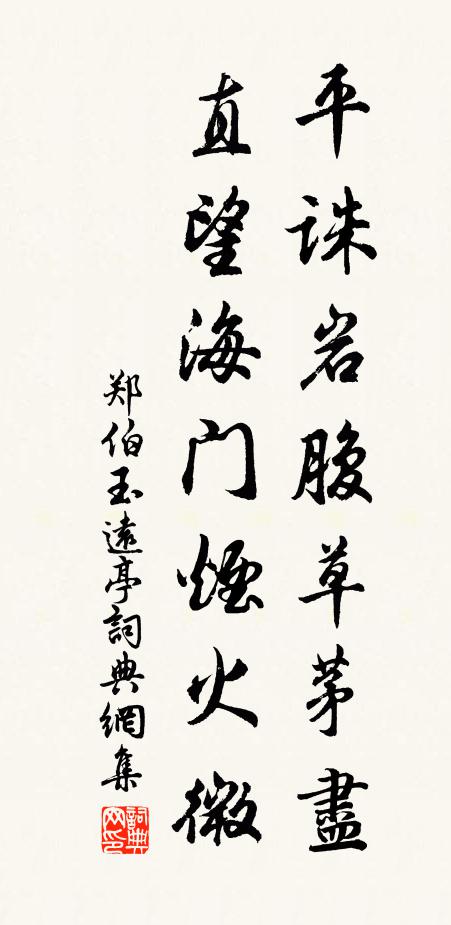 平誅岩腹草茅盡
直望海门煙火微
郑伯玉遠亭詞典網集
詞典网印